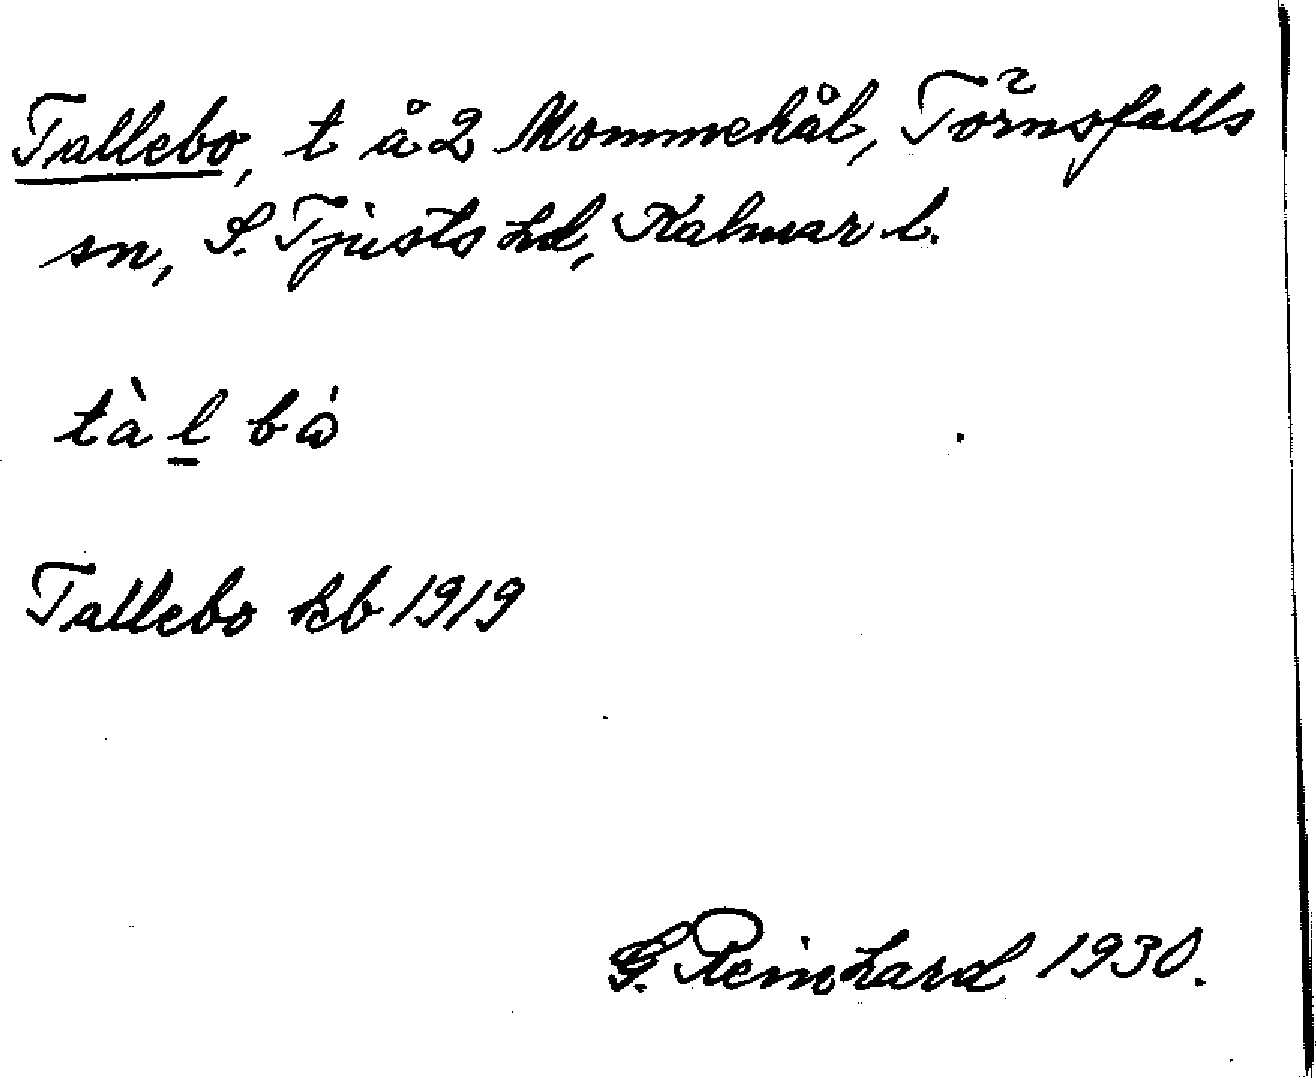 Tallebo, t å 2 Mommehål, Törnsfalls
sn, S. Tjusts hd, Kalmar l.
tàl bó
Tallebo kb 1919
G. Reinhard 1930.